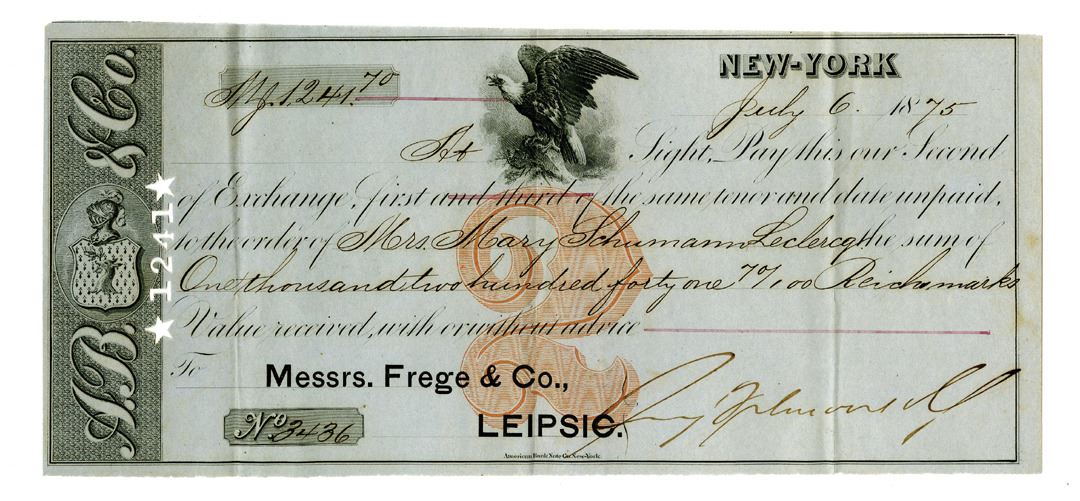 NEW-YORK
July 6. 1875
M. 1241.70
At Sight, Pay this our Second
of Exchange, first and third of the same tenor and date unpaid,
to the order of Mrs. Mary Schumann Leclercq the sum of
One thousand, two hundred forty one 70/100 Reichsmarks
Value received, with or without advice
To
Messrs. Frege & Co.,
LEIPSIC.
No 3436
American Bank Note Co. New-York.
& Co.
★1241★
2